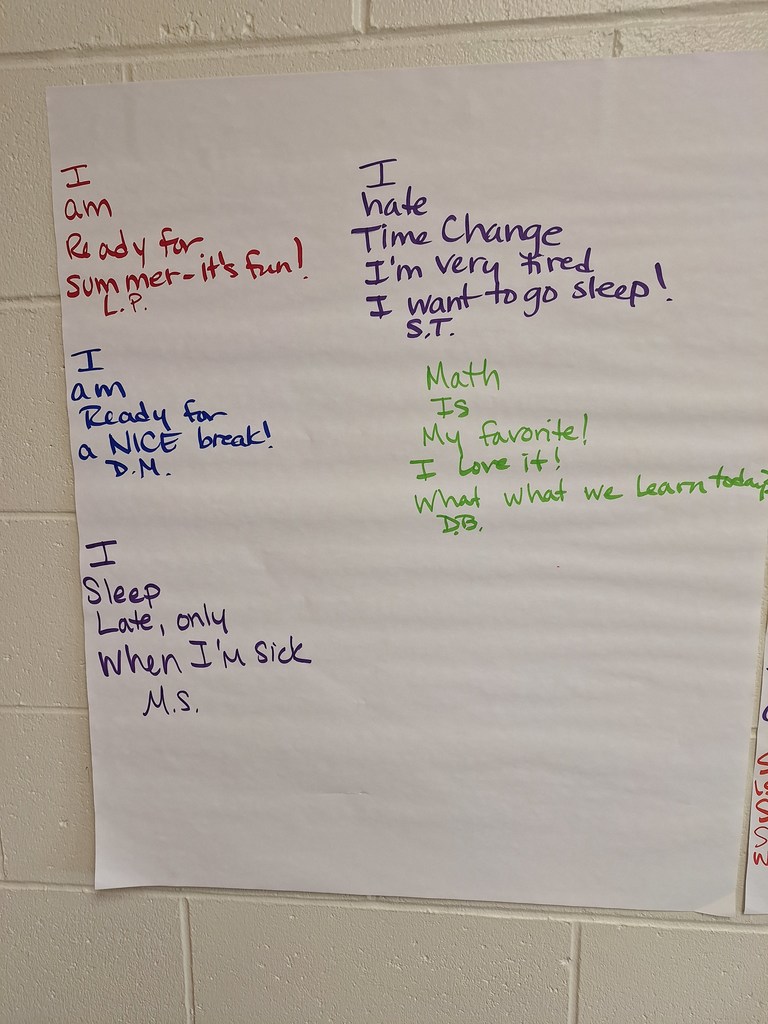 I
am
Ready for
summer-it's fun!
L.P.
I
am
Ready for
a NICE break!
D.M.
I
Sleep
Late, only
When I'M Sick
M.S.
I
hate
Time Change
I'm very tired
I want to go sleep!
S.T.
Math
Is
My favorite!
I Love it!
What what we Learn today?
D.B.